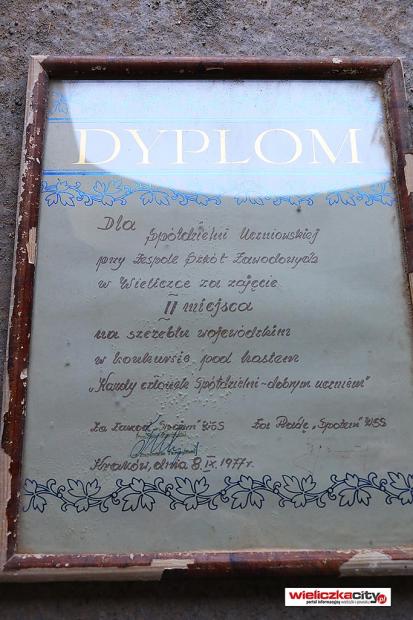 DYPLOM
Dla
Spółdzielni Uczniowskiej
przy Zespole Szkół Zawodowych
w Wieliczce za zajęcie
II miejsca
na szczeblu wojewódzkim
w konkursie pod hasłem
„Każdy członek Spółdzielni-dobrym uczniem"
Za Zarząd „Społem" WSS Za Radę „Społem" WSS
Kraków, dnia 8.IX.1977r.
wieliczkacity.pl
portal informacyjny wieliczki i powiatu